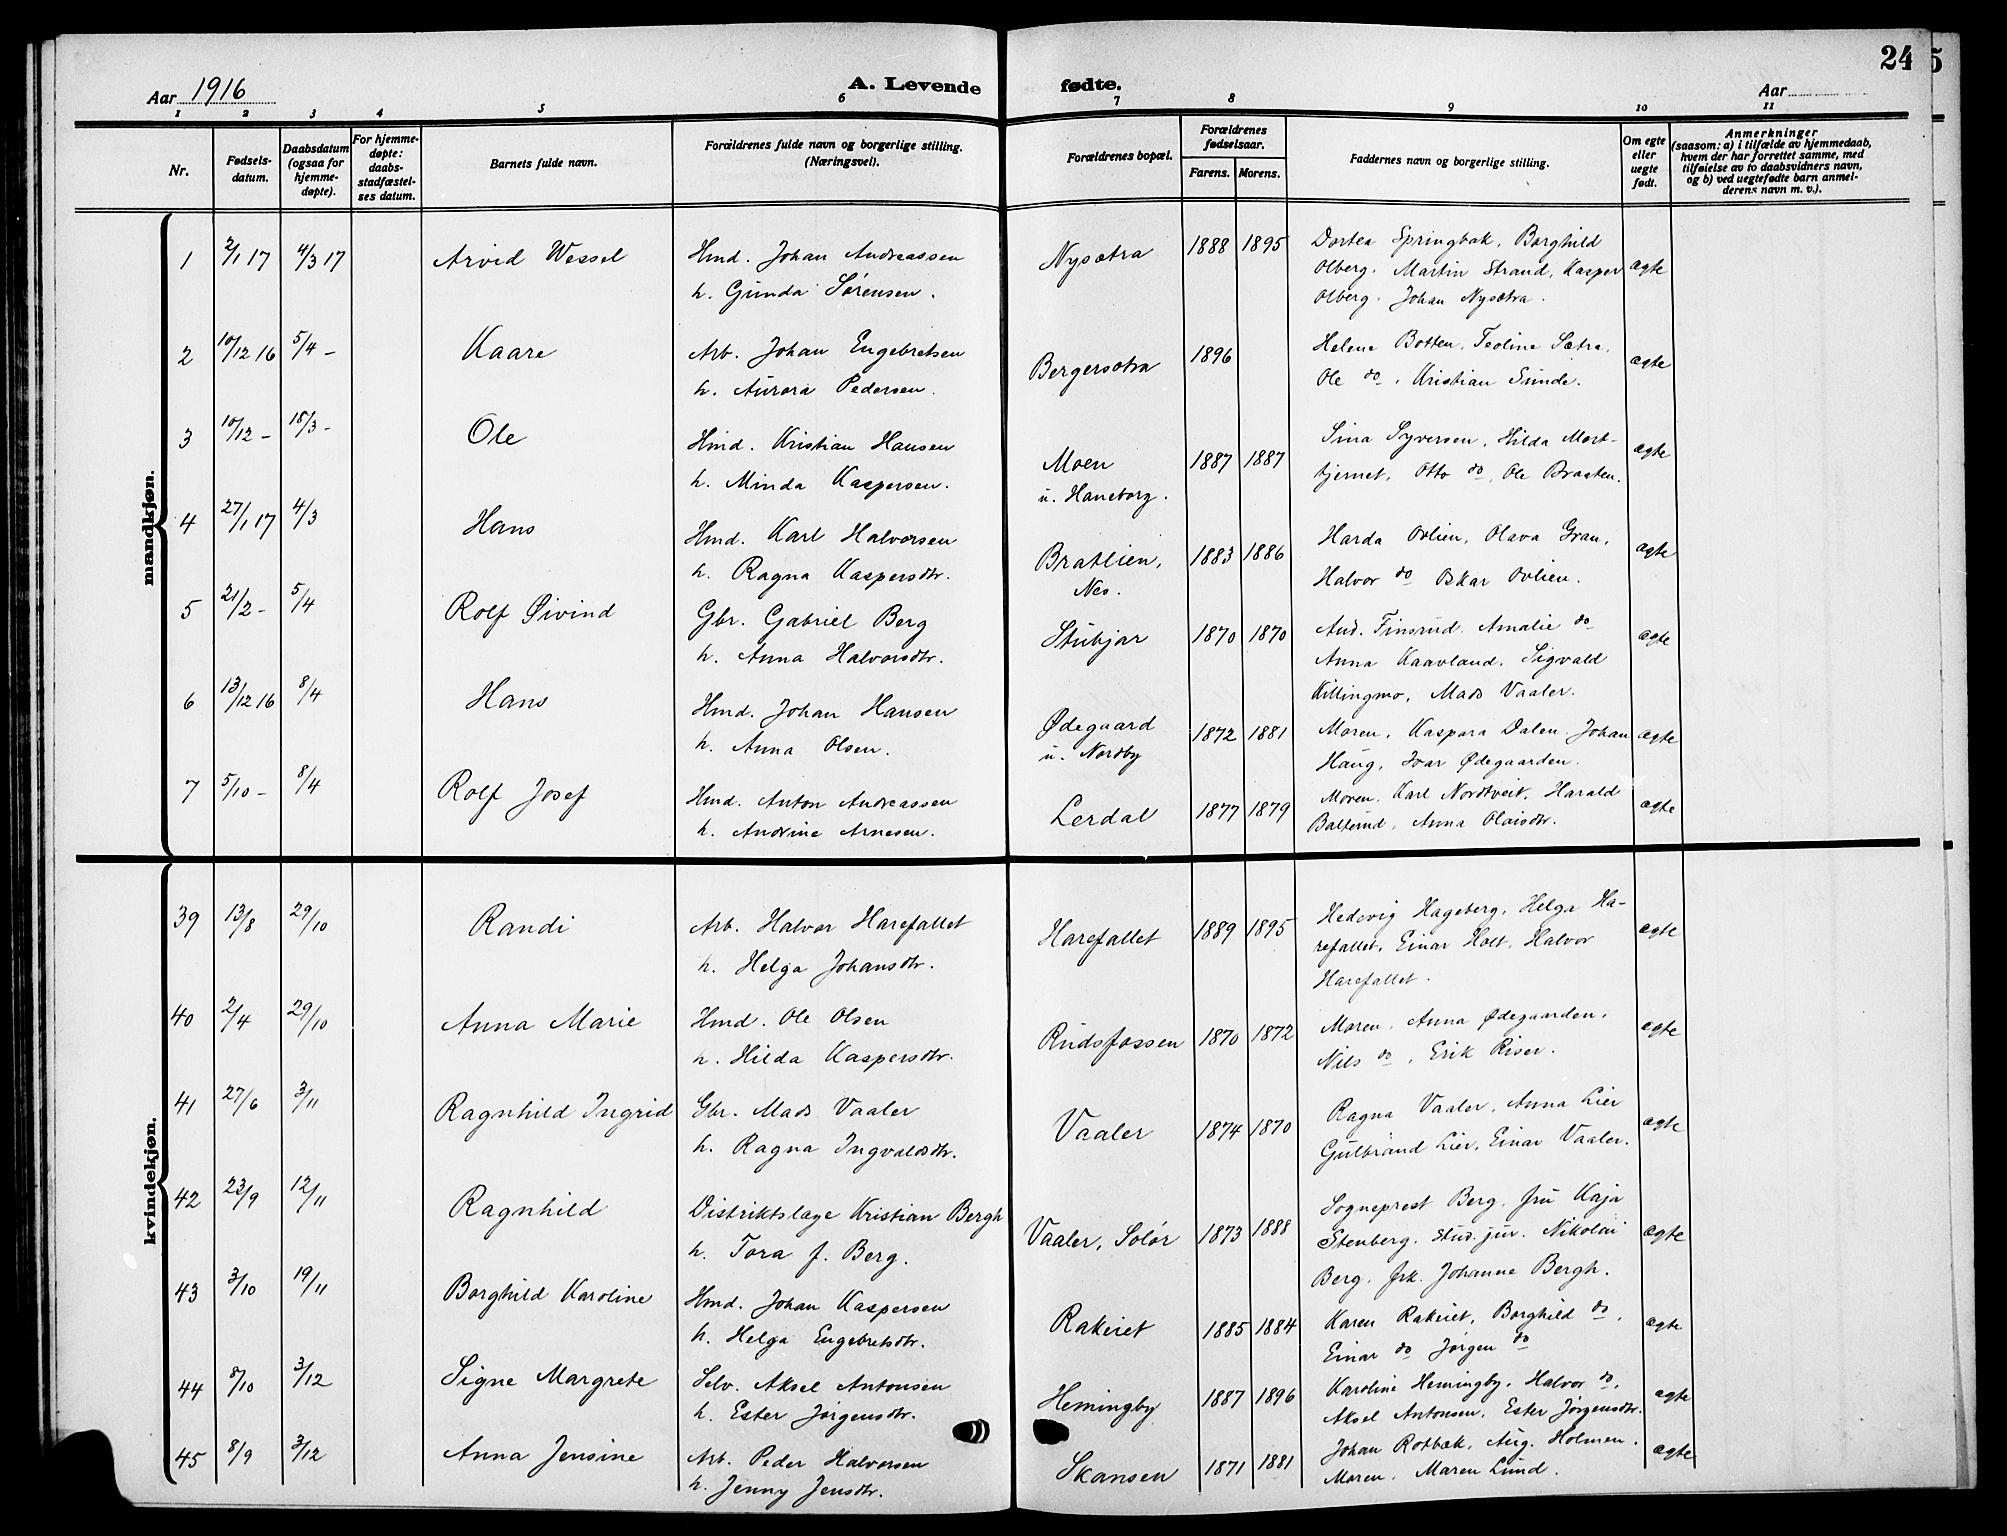 24
5
Aar 1916
A. Levende fødte.
Aar
1 2 3 4 5 6 7 8 9 10 11
Nr.
Fødsels-
datum.
Daabsdatum
(ogsaa for
hjemme-
døpte).
For hjemme-
døpte:
daabs-
stadfæstel-
ses datum.
Barnets fulde navn.
Forældrenes fulde navn og borgerlige stilling.
(Næringsvei).
Forældrenes bopæl.
Forældrenes
fødselsaar.
Farens. Morens.
Faddernes navn og borgerlige stilling.
Om egte
eller
uegte
født.
Anmerkninger
(saasom: a) i tilfælde av hjemmedaab,
hvem der har forrettet samme, med
tilføielse av to daabsvidners navn,
og b) ved uegtefødte barn anmel-
derens navn m. v.).
mandkjøn.
1 2/1 17 4/3 17 Arvid Wessel Hmd. Johan Andreassen Nysætra 1888 1895 Dortea Springbak, Borghild
h. Gunda Sørensen. Olberg. Martin Strand, Kasper ægte
Olberg. Johan Nysætra.
2 10/12 16 5/4 – Kaare Arb. Johan Engebretsen Bergersætra 1896 Helene Botten, Teoline Sætra,
h. Aurora Pedersen. Ole do, Kristian Sunde. ægte
3 10/12 – 18/3 – Ole Hmd. Kristian Hansen Moen 1887 1887 Sina Syversen, Hilda Mort- ægte
h. Minda Kaspersen. u. Haneborg. tjernet, Otto do, Ole Braaten.
4 27/1 17 4/3 Hans Hmd. Karl Halvorsen Bratlien, 1883 1886 Harda Ovlien, Olava Gran, ægte
h. Ragna Kaspersdtr. Nes. Halvor do Oskar Ovlien.
5 21/2 – 5/4 Rolf Øivind Gbr. Gabriel Berg Stubjar 1870 1870 And. Tinsrud. Amalie do ægte
h. Anna Halvorsdtr. Anna Kaavland, Sigvald
Killingmo, Mads Vaaler.
6 13/12 16 8/4 Hans Hmd. Johan Hansen Ødegaard 1872 1881 Moren, Kaspara Dalen. Johan ægte
h. Anna Olsen. u. Nordby Haug, Ivar Ødegaarden.
7 5/10 – 8/4 Rolf Josef Hmd. Anton Andreassen Lerdal 1877 1879 Moren, Karl Nordtveit, Harald ægte
h. Andrine Arnesen. Balterud, Anna Olaisdtr.
kvindekjøn.
39 13/8 29/10 Randi Arb. Halvor Harefallet Harefallet 1889 1895 Hedevig Hageberg, Helga Ha- ægte
h. Helga Johansdtr. refallet, Einar Holt, Halvor
Harefallet.
40 2/4 29/10 Anna Marie Hmd. Ole Olsen Rudsfossen 1870 1872 Moren, Anna Ødegaarden, ægte
h. Hilda Kaspersdtr. Nils do, Erik Riser.
41 27/6 3/11 Ragnhild Ingrid Gbr. Mads Vaaler Vaaler 1874 1870 Ragna Vaaler, Anna Lier ægte
h. Ragna Ingvaldsdtr. Gulbrand Lier, Einar Vaaler.
42 23/9 12/11 Ragnhild Distriktslæge Kristian Bergh Vaaler, Solør 1873 1888 Sogneprest Berg, fru Kaja
h. Tora f. Berg. Stenberg. Stud. jur. Nikolai ægte
Berg, frk. Johanne Bergh.
43 3/10 19/11 Borghild Karoline Hmd. Johan Kaspersen Rakeiet 1885 1884 Karen Rakeiet, Borghild do, ægte
h. Helga Engebretsdtr. Einar do Jørgen do
44 8/10 3/12 Signe Margrete Selv. Aksel Antonsen Hemingby 1887 1896 Karoline Hemingby, Halvor do, ægte
h. Ester Jørgensdtr. Aksel Antonsen, Ester Jørgensdtr.
45 8/9 3/12 Anna Jensine Arb. Peder Halvorsen Skansen 1871 1881 Johan Rotbæk, Aug. Holmen. ægte
h. Jenny Jensdtr. Moren. Maren Lund.